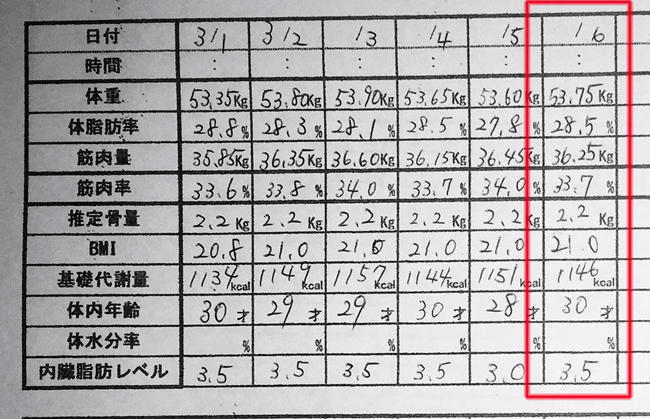 日付 3/1 3/2 /3 /4 /5 /6
時間 : : : : : :
体重 53.35Kg 53.80Kg 53.90Kg 53.65Kg 53.60Kg 53.75Kg
体脂肪率 28.8% 28.3% 28.1% 28.5% 27.8% 28.5%
筋肉量 35.85Kg 36.35Kg 36.60Kg 36.15Kg 36.45Kg 36.25Kg
筋肉率 33.6% 33.8% 34.0% 33.7% 34.0% 33.7%
推定骨量 2.2Kg 2.2Kg 2.2Kg 2.2Kg 2.2Kg 2.2Kg
BMI 20.8 21.0 21.0 21.0 21.0 21.0
基礎代謝量 1134kcal 1149kcal 1157kcal 1144kcal 1151kcal 1146kcal
体内年齢 30才 29才 29才 30才 28才 30才
体水分率 % % % % % %
内臓脂肪レベル 3.5 3.5 3.5 3.5 3.0 3.5